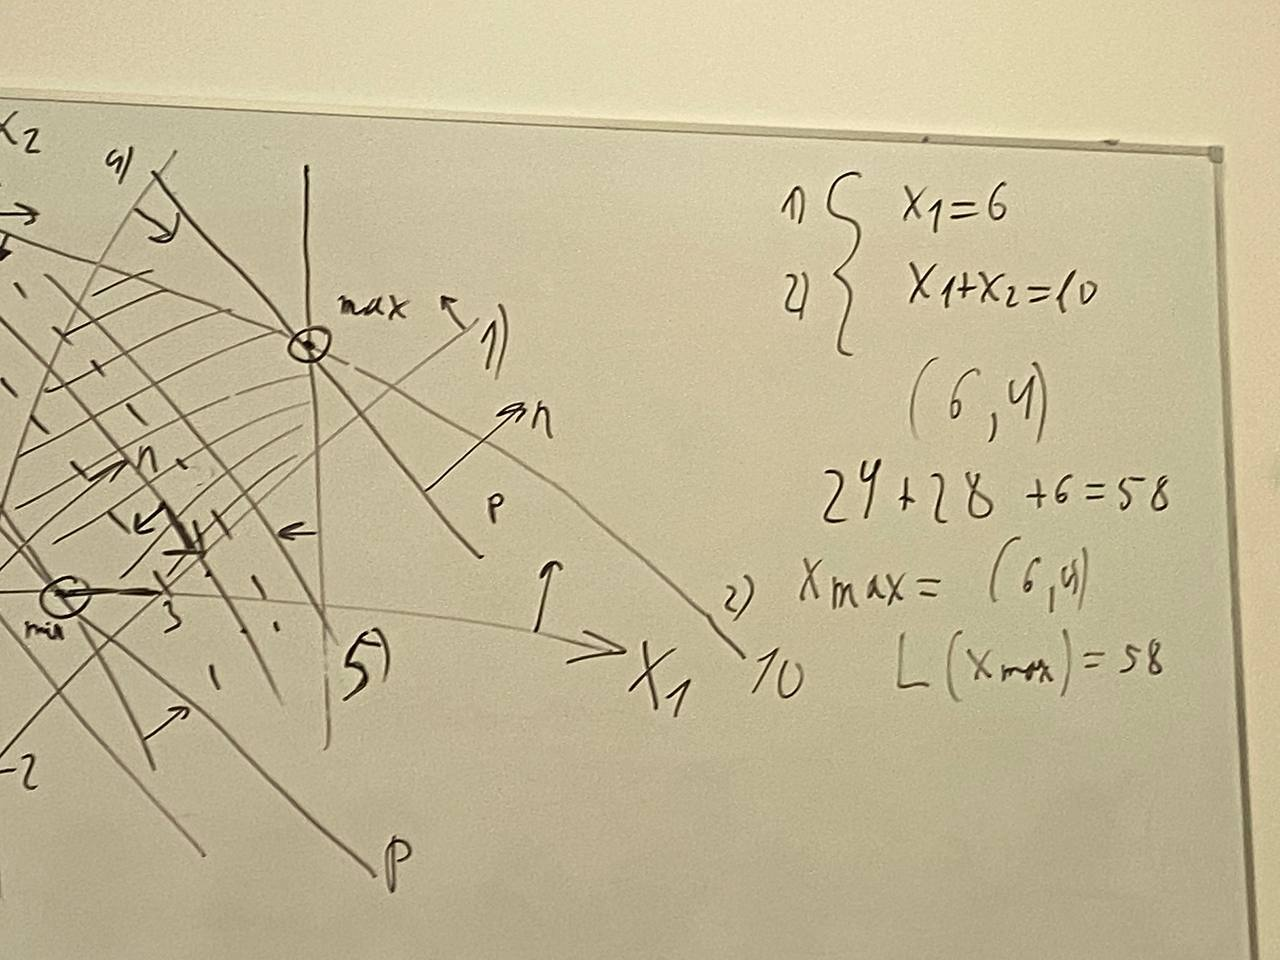 x2
4)
max
1)
n
n
p
min
3
5)
x1
2)
10
-2
p
1) { x1=6
2) x1+x2=10
(6,4)
24+28+6=58
xmax= (6,4)
L(xmax)=58